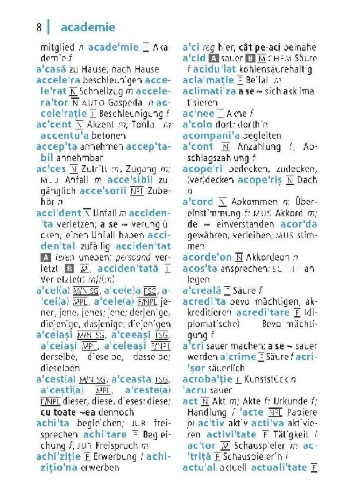 8 | academie
mitglied n acade'mie F Aka-
demie f
a'casă zu Hause; nach Hause
accele'ra beschleunigen acce-
le'rat N Schnellzug m accele-
ra'tor N AUTO Gaspedal n ac-
cele'rație F Beschleunigung f
ac'cent N Akzent m; Tonfall m
accentu'a betonen
accep'ta annehmen accep'ta-
bil annehmbar
ac'ces N Zutritt m, Zugang m;
acce'sibil zu-
gänglich acce'sorii NPL Zube-
hör n
acci'dent N Unfall m acciden-
'ta verletzen; a se ~ verunglü-
cken, einen Unfall haben acci-
den'tal zufällig acciden'tat
A teren uneben; persoană ver-
letzt B M, acciden'tată F
Verletzte(r) m/f(m)
a'cel(a) M/N SG, a'cee(a) FSG, a-
'cei(a) MPL, a'cele(a) F/NPL je-
ner, jene, jenes; jene; derjenige,
diejenige, dasjenige; diejenigen
a'celași M/N SG, a'ceeași FSG,
a'ceiași MPL, a'celeași F/NPL
derselbe, dieselbe, dasselbe;
dieselben
a'cest(a) M/N SG, a'ceasta FSG,
a'cești(a) MPL, a'ceste(a)
F/NPL dieser, diese, dieses; diese;
cu toate ~ea dennoch
achi'ta begleichen; JUR frei-
sprechen achi'tare F Beglei-
chung f; JUR Freispruch m
achi'ziție F Erwerbung f achi-
zițio'na erwerben
a'ci reg hier; cât pe-aci beinahe
a'cid A sauer B N CHEM Säure
f acidu'lat kohlensäurehaltig
aclama'ție F Beifall m
aclimati'za a se ~ sich akklima-
tisieren
ac'nee F Akne f
a'colo dort; dorthin
acompani'a begleiten
a'cont N Anzahlung f, Ab-
schlagszahlung f
acope'ri bedecken, zudecken,
(ver)decken acope'riș N Dach
n
a'cord N Abkommen n; Über-
einstimmung f; MUS Akkord m;
de ~ einverstanden acor'da
gewähren; verleihen; MUS stim-
men
acorde'on N Akkordeon n
acos'ta ansprechen; an-
legen
a'creală F Säure f
acredi'ta bevollmächtigen, ak-
kreditieren acredi'tare F (di-
plomatische) Bevollmächti-
gung f
a'cri sauer machen; a se ~ sauer
werden a'crime F Säure f acri-
'șor säuerlich
acroba'ție F Kunststück n
'acru sauer
act N Akt m; Akte f; Urkunde f;
Handlung f 'acte NPL Papiere
pl ac'tiv aktiv acti'va aktivie-
ren activi'tate F Tätigkeit f
ac'tor M Schauspieler m ac-
'triță F Schauspielerin f
actu'al aktuell actuali'tate F